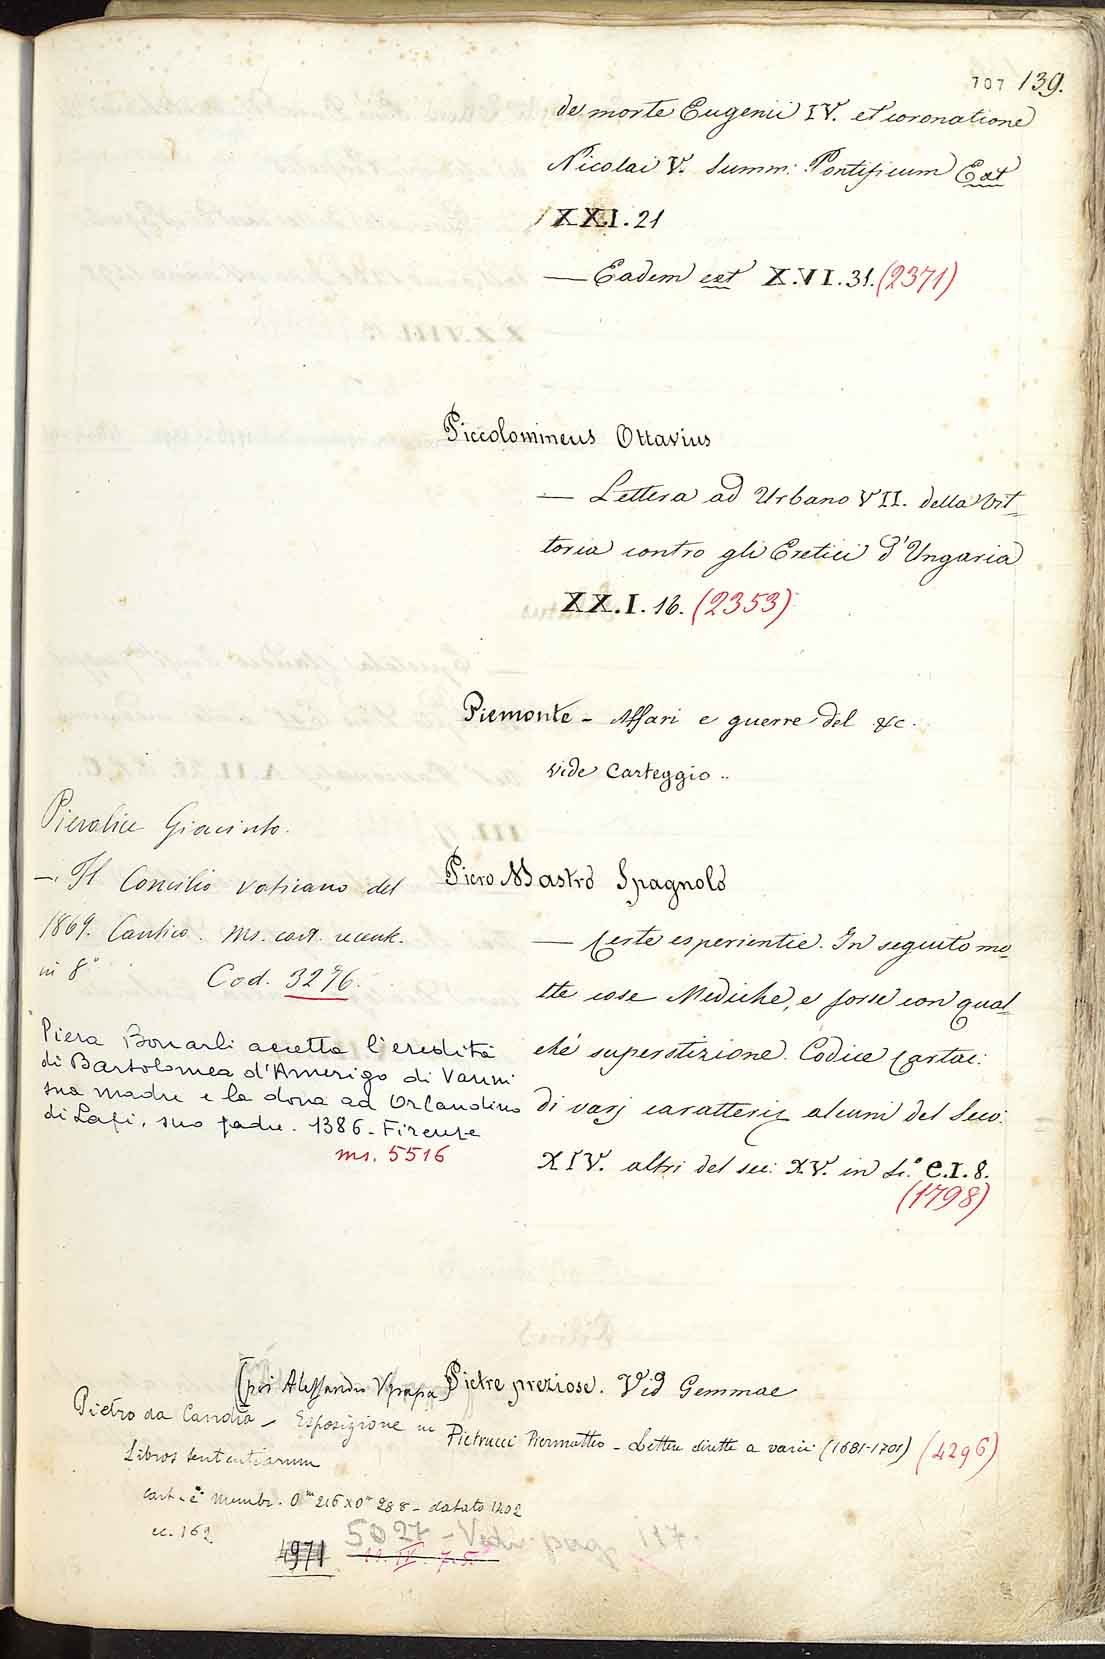 707 139.
de morte Eugenii IV. et coronatione
Nicolai V. Summ: Pontificum Ext
XXI. 21
— Eadem ext X.VI. 31. (2371)
Piccolomineus Ottavius
— Lettera ad Urbano VII. della Vit_
toria contro gli Eretici d'Ungaria
XX.I. 16. (2353)
Piemonte - Affari e guerre del &c.
vide Carteggio ..
Piero Mastro Spagnolo
— Certe esperientie. In seguito mo_
lte cose Mediche, e forse con qual_
che superstizione. Codice Cartac:
di varj caratteri, alcuni del Seco:
XIV. altri del sec: XV. in 4.° C.I. 8.
(1798)
Pieralice Giacinto.
— Il Concilio vaticano del
1869. Cantico. Ms. cart. recent.
in 8° Cod. 3296.
Piera Bonarli accetta l'eredità
di Bartolomea d'Amerigo di Vanni
sua madre e la dona ad Orlandino
di Lapi, suo padre. 1386 - Firenze
ms. 5516
Pietre preziose. Vid Gemmae
Pietrucci Piermatteo - Lettere dirette a varii (1681-1701) (4296)
(poi Alessandro V papa)
Pietro da Candia - Esposizione in
Libros sententiarum
cart. e membr. 0m 216 x 0m 288 - datato 1402
cc. 162
4971 11. IV. 7.5.
5027 - Vedi pag 117.